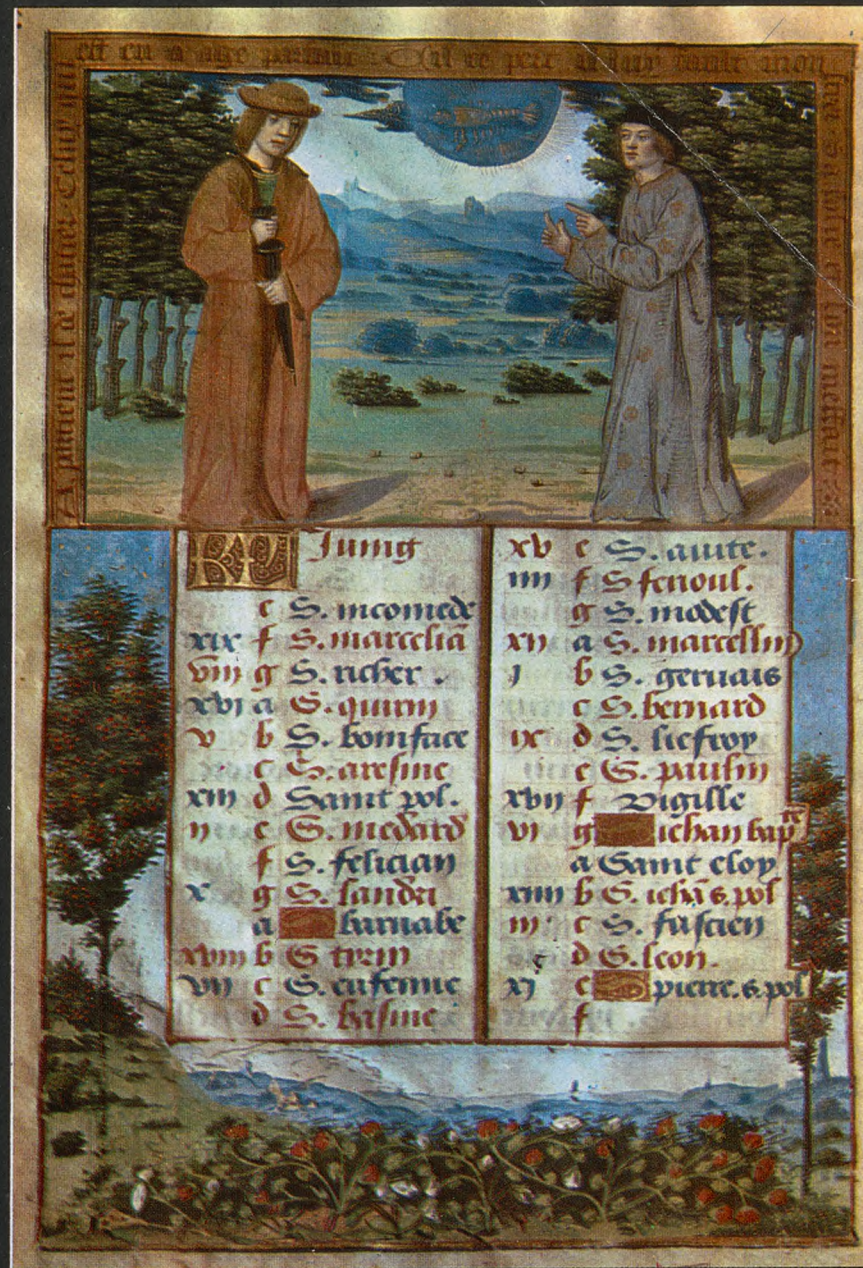 est en a age
KL Juing
e S. incomede
xix f S. marceliã
viii g S. richer.
xvi a S. quirin
v b S. boniface
c S. aresine
xiii d Saint pol.
ii e S. medard
f S. felician
x g S. landri
a S barnabe
xviii b S turin
vii c S. eufemie
d S. basine
xv e S. auite.
iiii f S fenoul.
g S. modest
xii a S. marcellin
i b S. geruais
c S. bernard
ix d S. liefroy
e S. paulin
xvii f Vigille
vi g S iehan bap
a Saint eloy
xiiii b S. iehã s. pol
iii c S. fascien
d S. leon.
xi e S pierre. s. pol
f